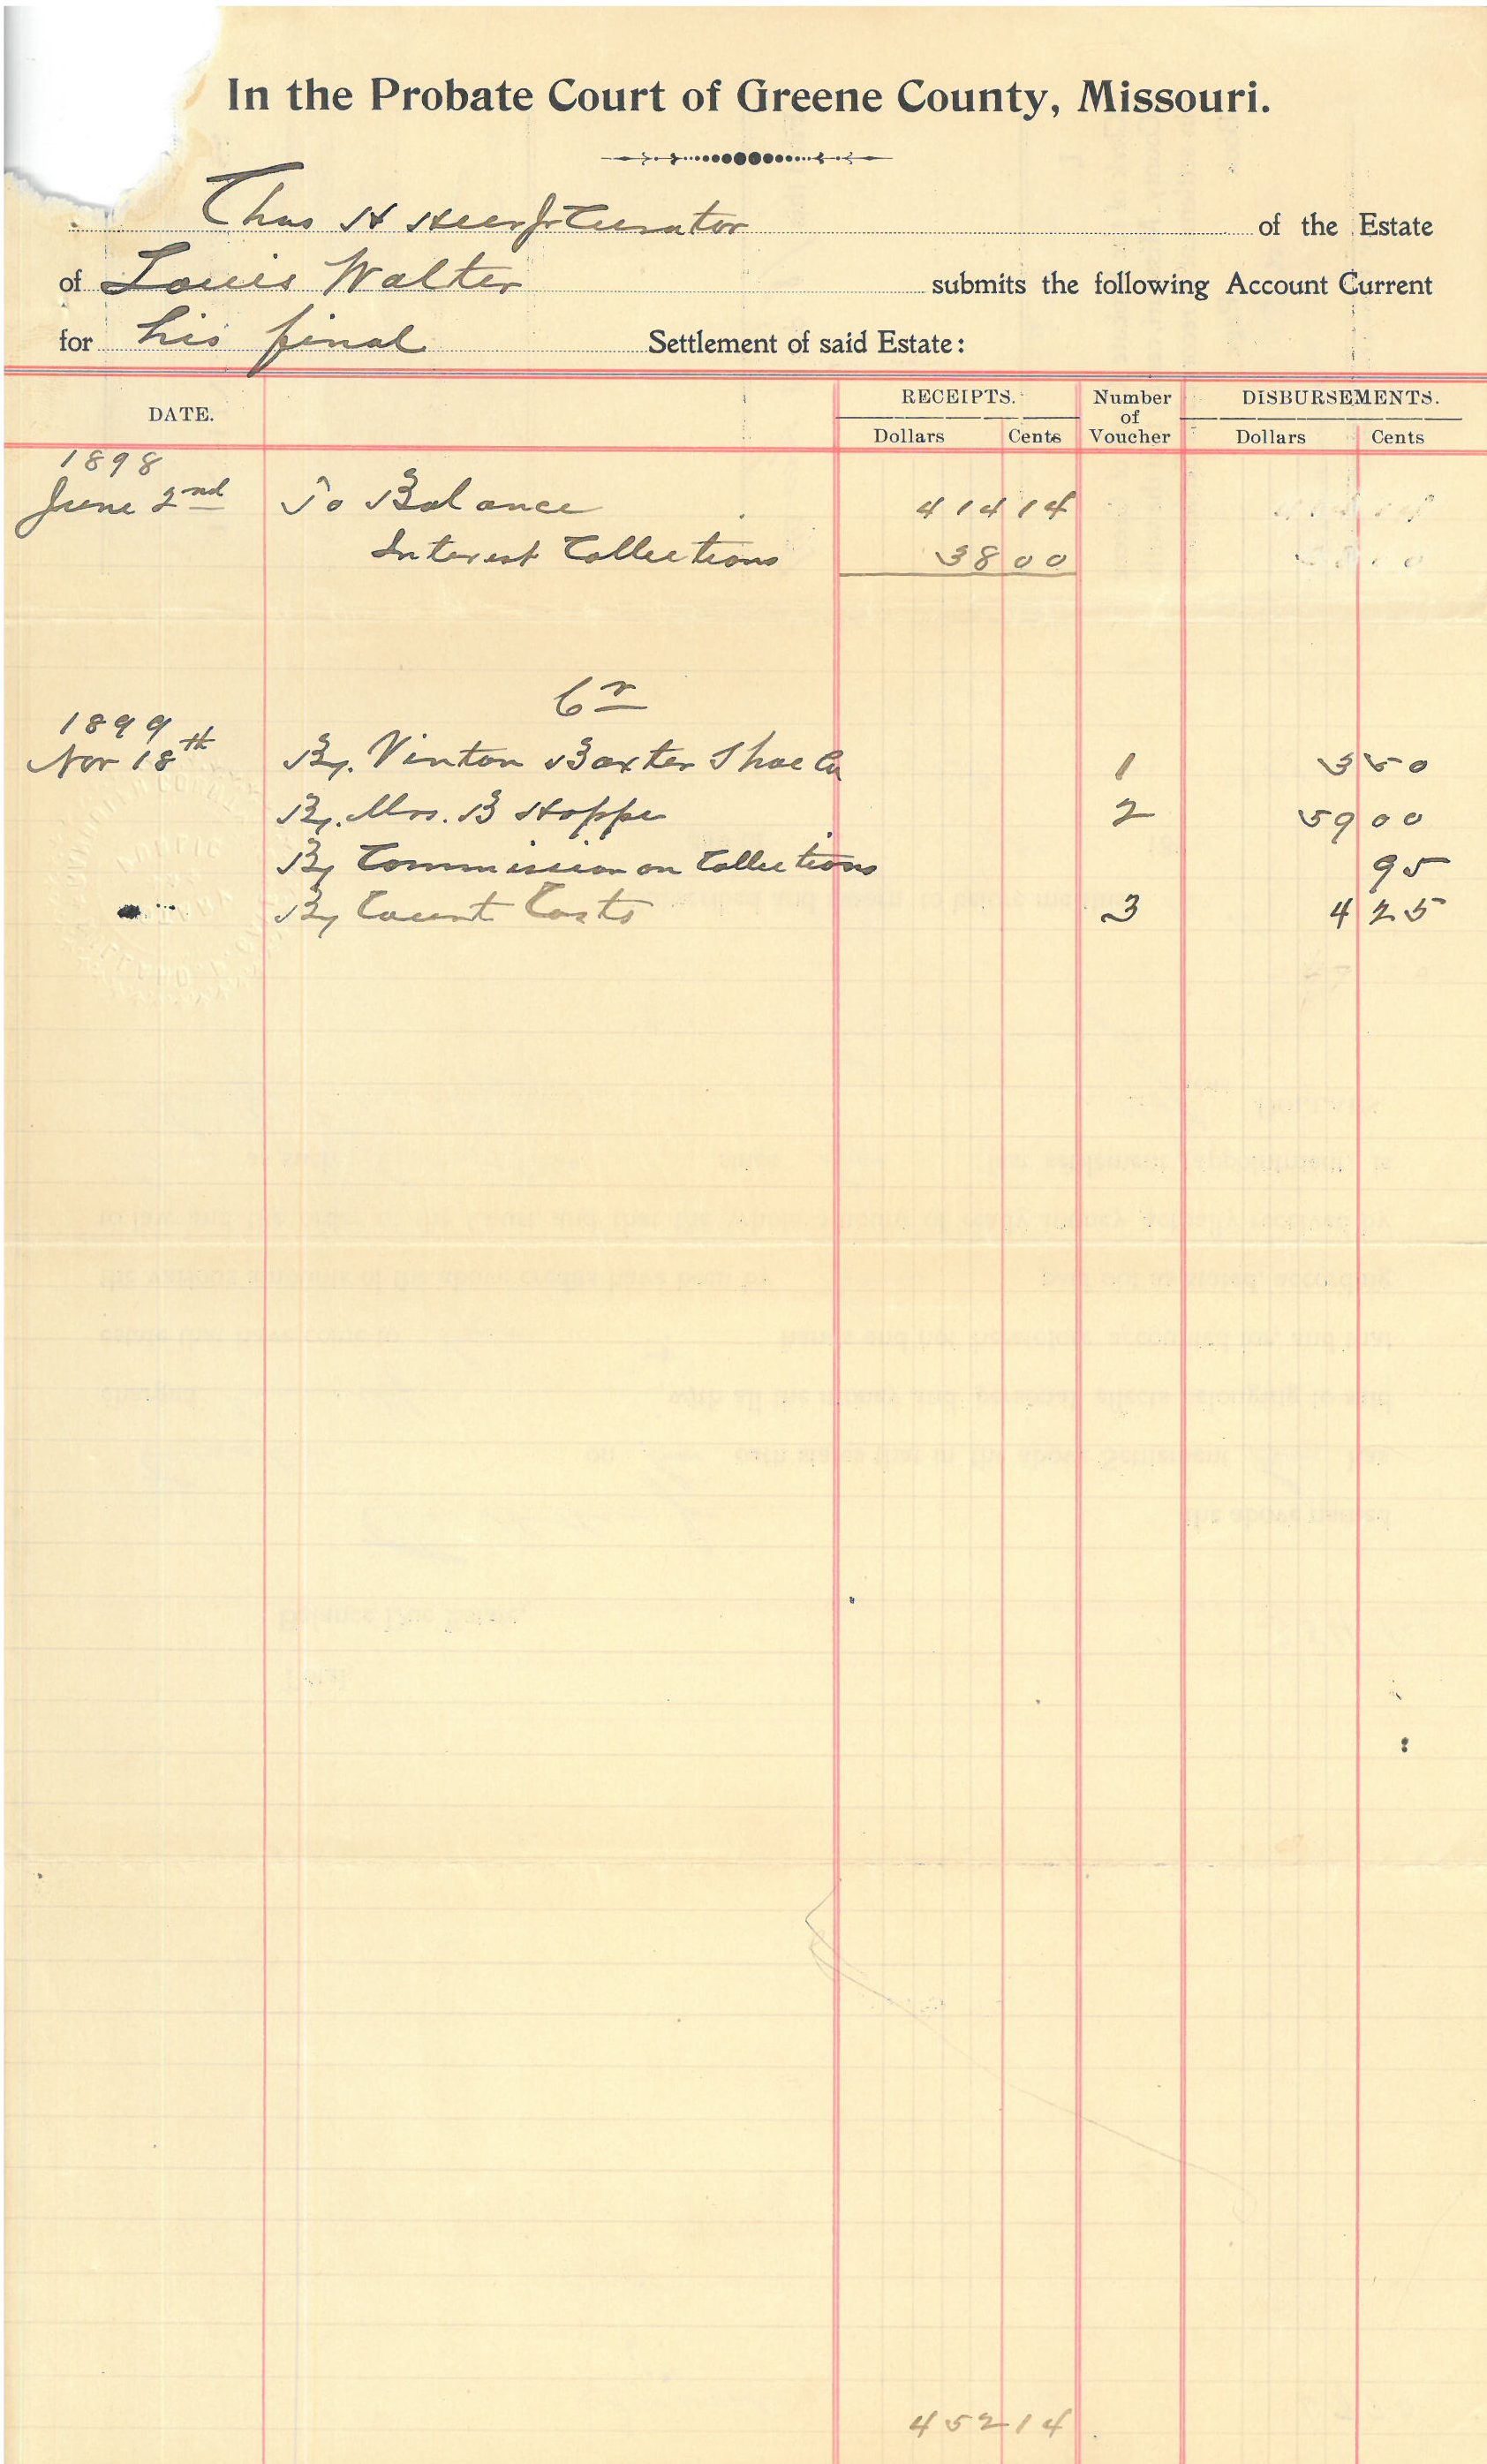 In the Probate Court of Greene County, Missouri.
Chas H Heer Jr Curator of the Estate
of Louis Walter submits the following Account Current
for his final Settlement of said Estate:
DATE. RECEIPTS. Number of Voucher DISBURSEMENTS.
Dollars Cents Dollars Cents
1898
June 2nd To Balance 414 14
Interest Collections 38 00
Cr
1899
Nov 18th By. Vinton Baxter Shoe Co 1 3 50
By. Mrs. B Hoppe 2 59 00
By Commission on Collections 95
By Court Costs 3 4 25
452 14